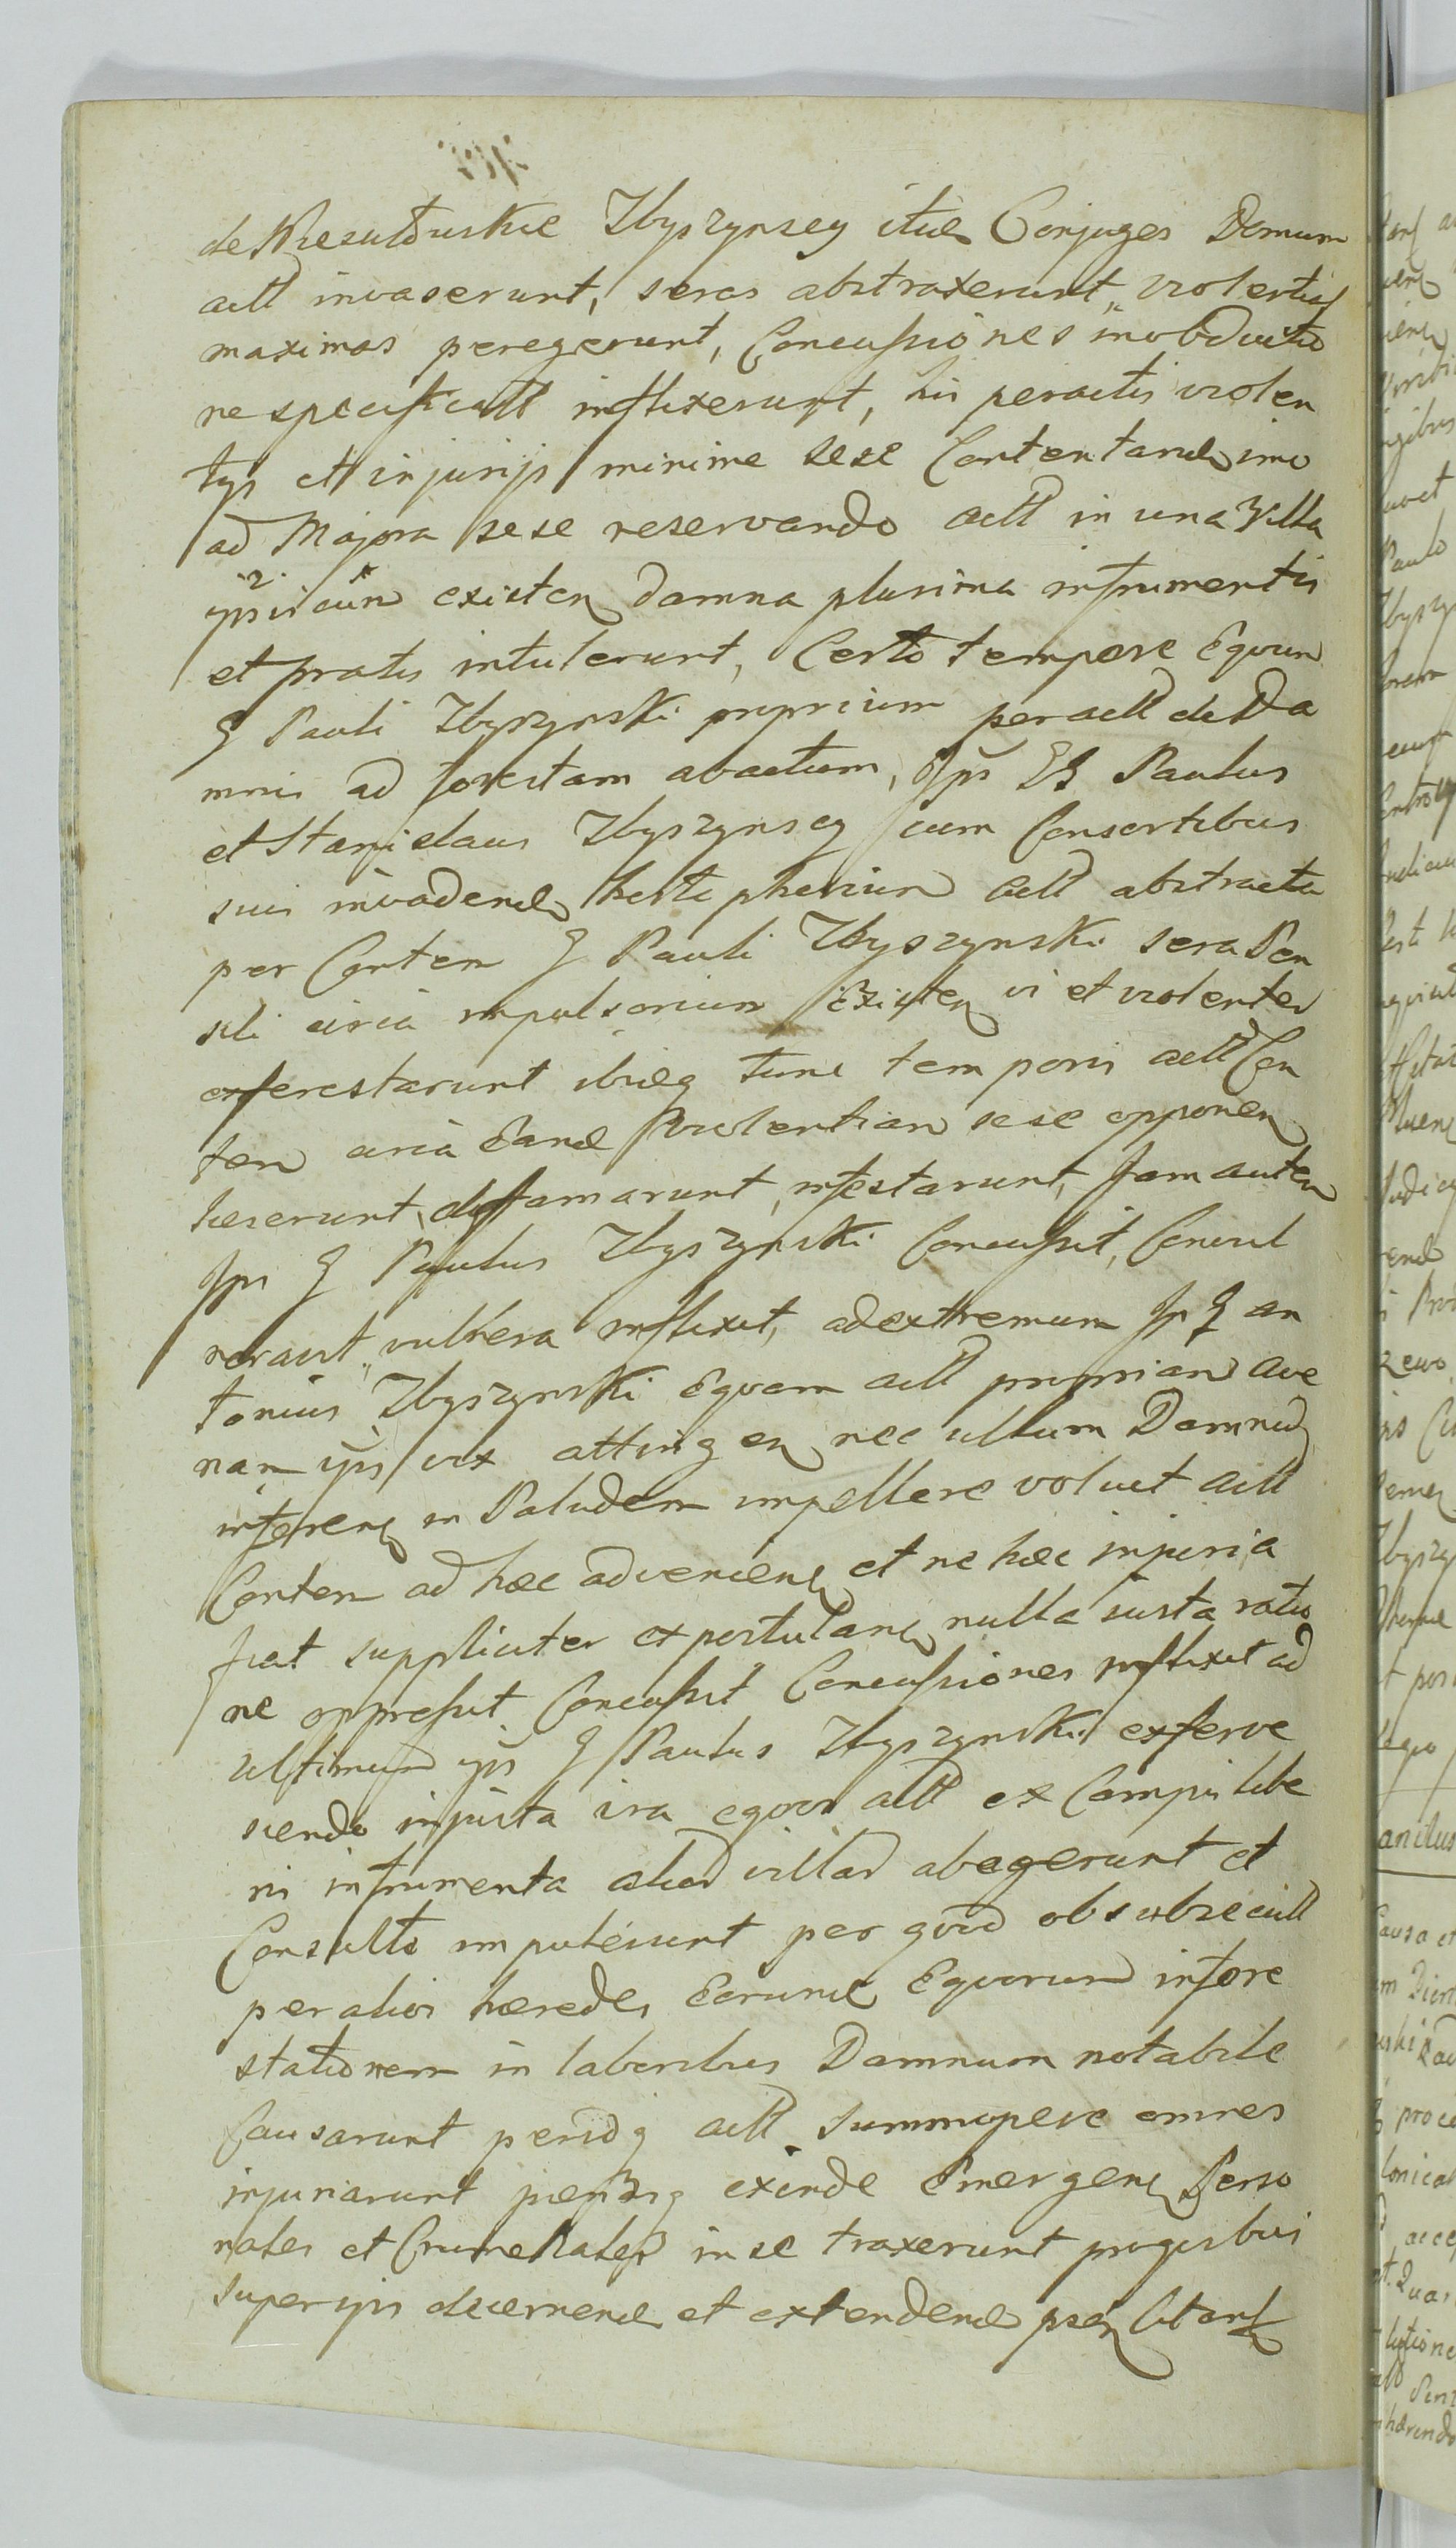 de Niesułowskie Zbyszynscy itid Conjuges Domum
actt invaserunt, seras abstraxerunt, violentias
maximas peregerunt, Concussiones in obductio
ne specificatt inflixerunt, his peractis violen
tijs et injurijs minime sese Contentand imo
ad Majora sese reservando actt in una Villa
ipsis cum existen damna plurima in frumentis
et pratis intulerunt, Certo tempore Equum
G Pauli Zbyszynski proprium per actt de Da
mnis ad forestam abactum, Ips GG Paulus
et Stanislaus Zbyszynscy cum Consortibus
suis invadend actt abstracta
per Conten G Pauli Zbyszynski sera Pen
sili circa impulsorium Existen vi et violenter
exforestarunt ibieq tunc temporis actt Con
ten circa Eand Violentiam sese opponen
læserunt, diffamarunt, infestarunt, Jam autem
Ips G Paulus Zbyszynski Concussit, Concul
cavit vulnera inflixit, ad extremum Ip G An
tonius Zbyszynski Equam actt propriam ave
nam ips vix attingen nec ullum Damnum
inferen in Paludem impellere voluit actt
Conten ad hæc advenien et ne hæc injuria
fiat suppliciter expostulan nulla iusta ratio
ne oppressit Concussit Concussiones inflixit ad
ultimum ips G Paulus Zbyszynski exferve
scendo injusta ira equos actt ex Campis libe
ris in frumenta aliar villar abegerunt et
Consulto impulerunt per quod obsubsecutt
per alios hæredes Earund Equorum infore
stationem in laboribus Damnum notabile
Causarunt peridq actt summopere omnes
injuriarunt pænasq exinde Emergen Perso
nales et Criminales in se traxerunt proquibus
super ips decernend et extendend psen Citans